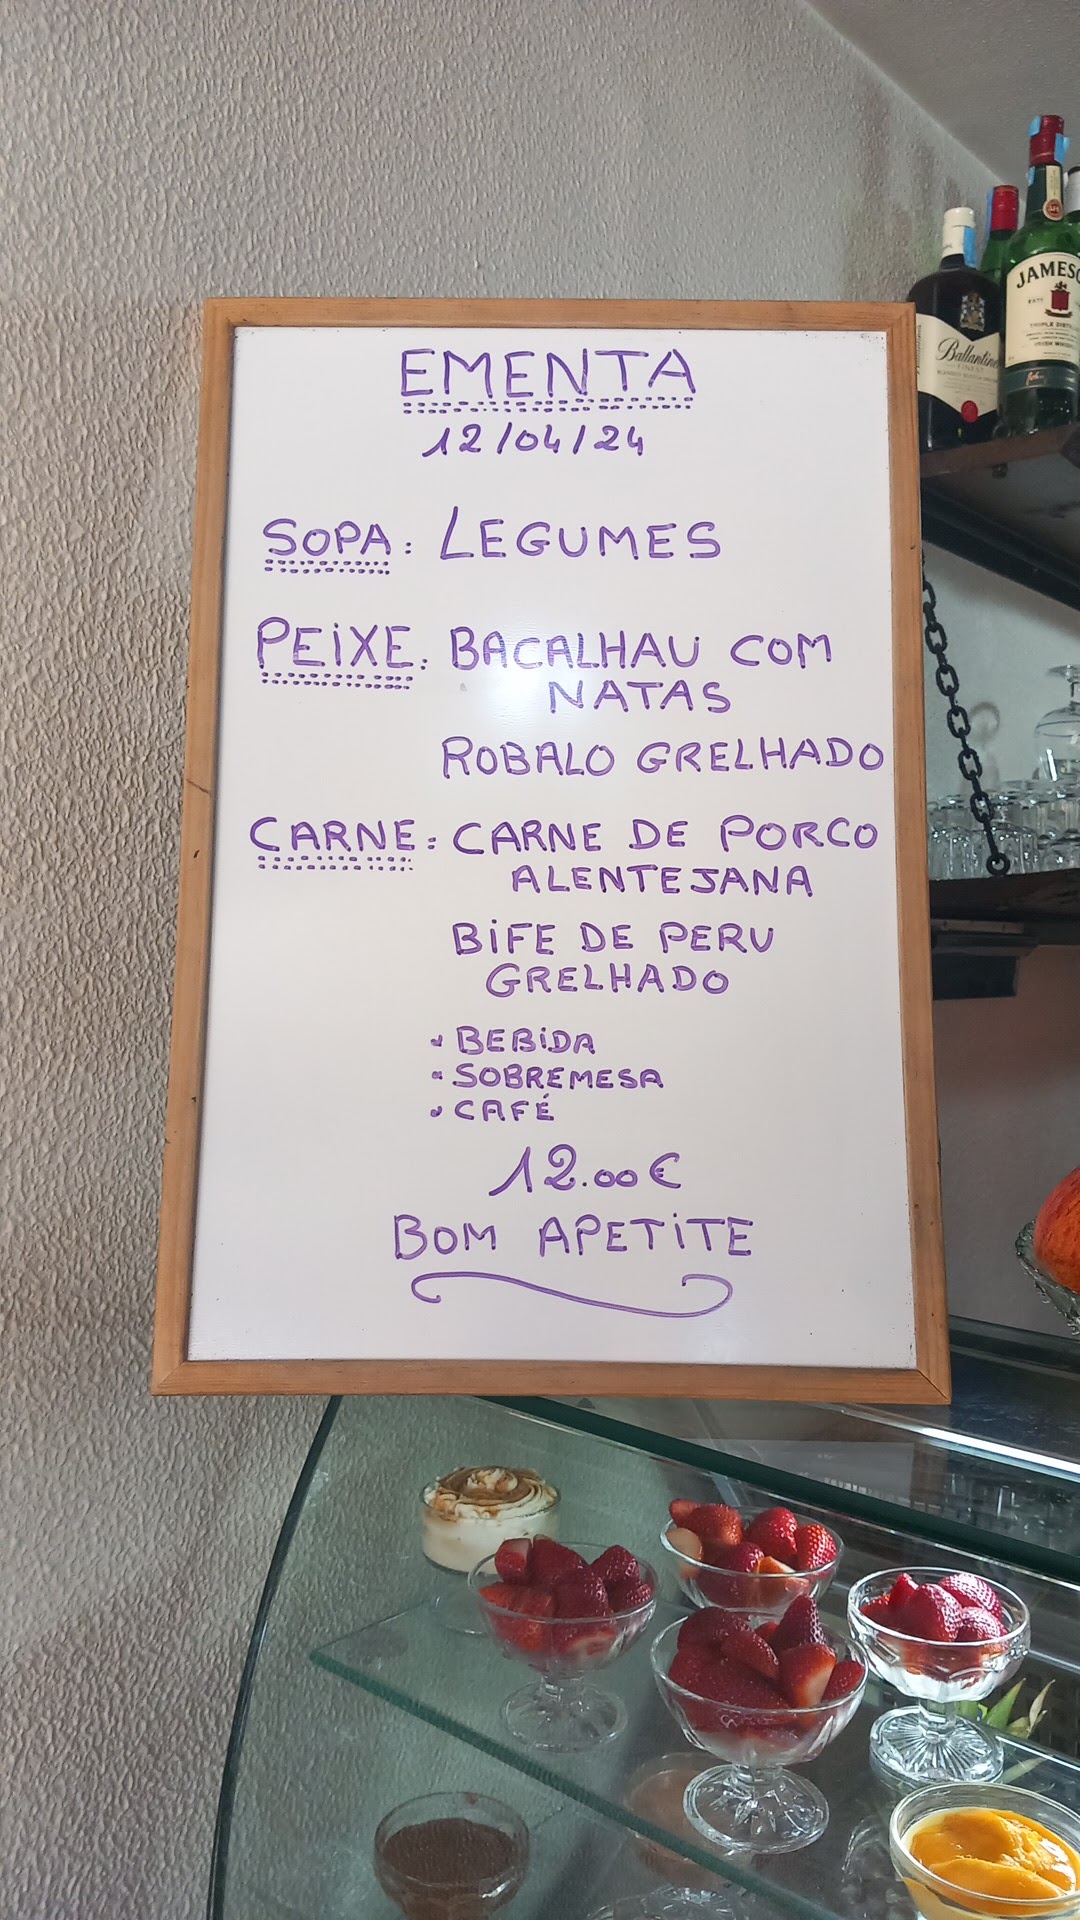 EMENTA
12/04/24
SOPA: LEGUMES
PEIXE: BACALHAU COM
NATAS
ROBALO GRELHADO
CARNE: CARNE DE PORCO
ALENTEJANA
BIFE DE PERU
GRELHADO
• BEBIDA
• SOBREMESA
• CAFÉ
12.00€
BOM APETITE
JAMES
TRIPLE
IRISH
Ballantine
FINEST